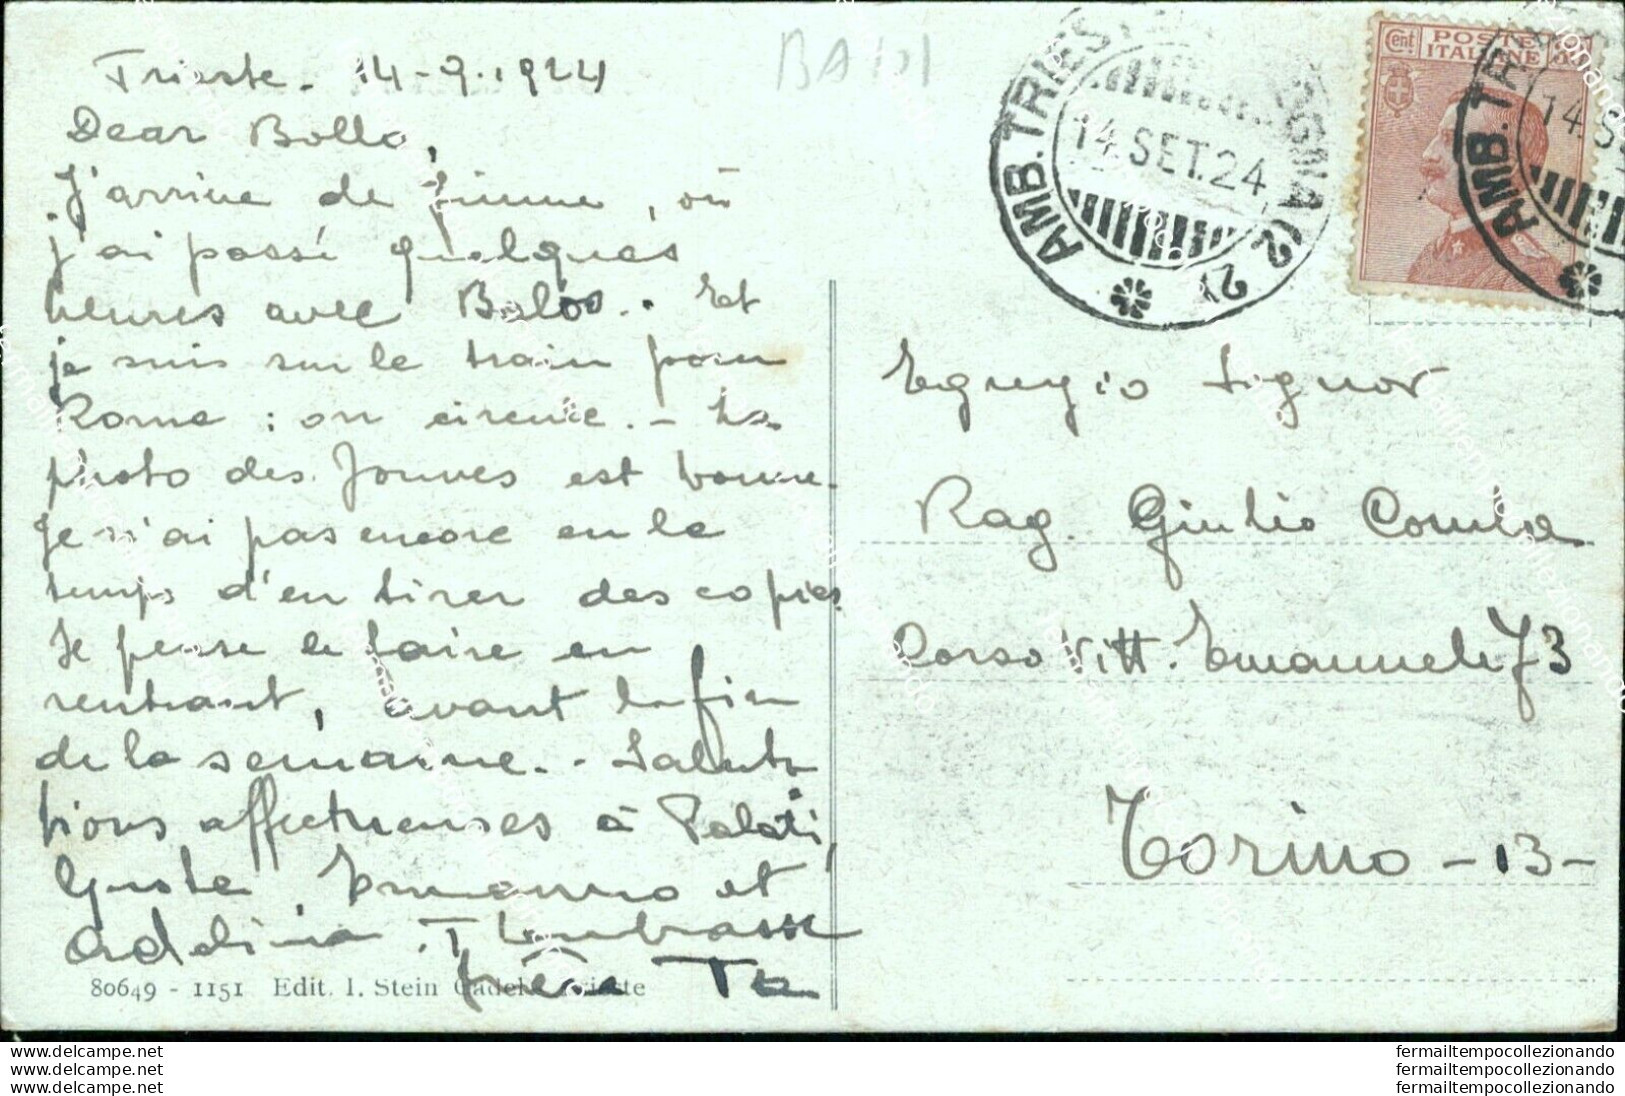 Trieste. 14-9.1924
Dear Bollo,
J'arrive de Fiume, où
j'ai passé quelques
heures avec . Et
je suis sur le train pour
Rome : on circule. - La
photo des Jouves est bonne.
Je n'ai pas encore eu le
temps d'en tirer des copies.
Je pense le faire en
rentrant, avant la fin
de la semaine. - Saluta
tions affectueuses à Palati,
Giusta, Ermanno et
Adelina. T'embrasse
frère Ta
80649 - 1151 Edit. I. Stein Trieste
BA101
AMB. TRIESTE
14.SET.24
(2 2)
Cent POSTE ITALIANE
AMB. TR
14.S
Egregio Signor
Rag. Giulio Comba
Corso Vitt. Emanuele 73
Torino - 13 -
www.delcampe.net
www.delcampe.net
www.delcampe.net
fermailtempocollezionando
fermailtempocollezionando
fermailtempocollezionando